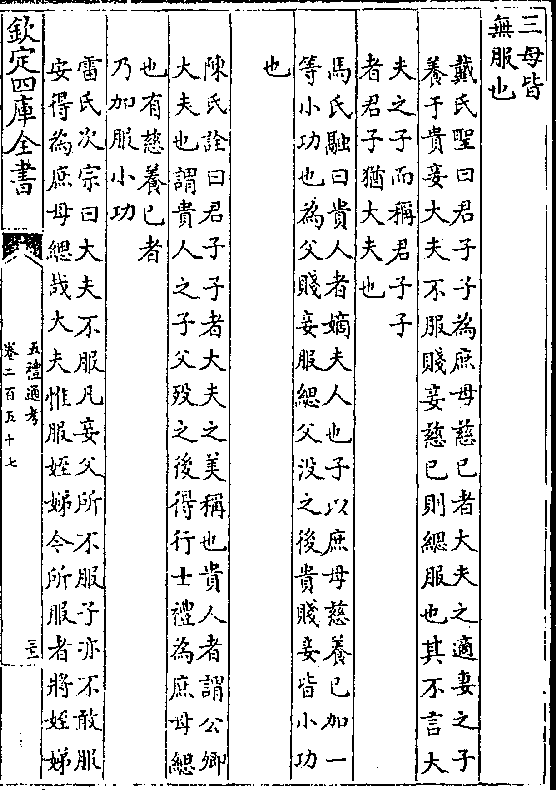 三母皆
無服也
戴氏聖曰君子子為庶母慈己者大夫之適妻之子
養于貴妾大夫不服賤妾慈己則緦服也其不言大
夫之子而稱君子子
者君子猶大夫也
馬氏融曰貴人者嫡夫人也子以庶母慈養己加一
等小功也為父賤妾服緦父沒之後貴賤妾皆小功
也
陳氏詮曰君子子者大夫之美稱也貴人者謂公卿
大夫也謂貴人之子父歿之後得行士禮為庶母緦
也有慈養己者
乃加服小功
雷氏次宗曰大夫不服凡妾父所不服子亦不敢服
安得為庶母緦哉大夫惟服姪娣今所服者將姪娣
欽定四庫全書
五禮通考
卷二百五十七
三十三